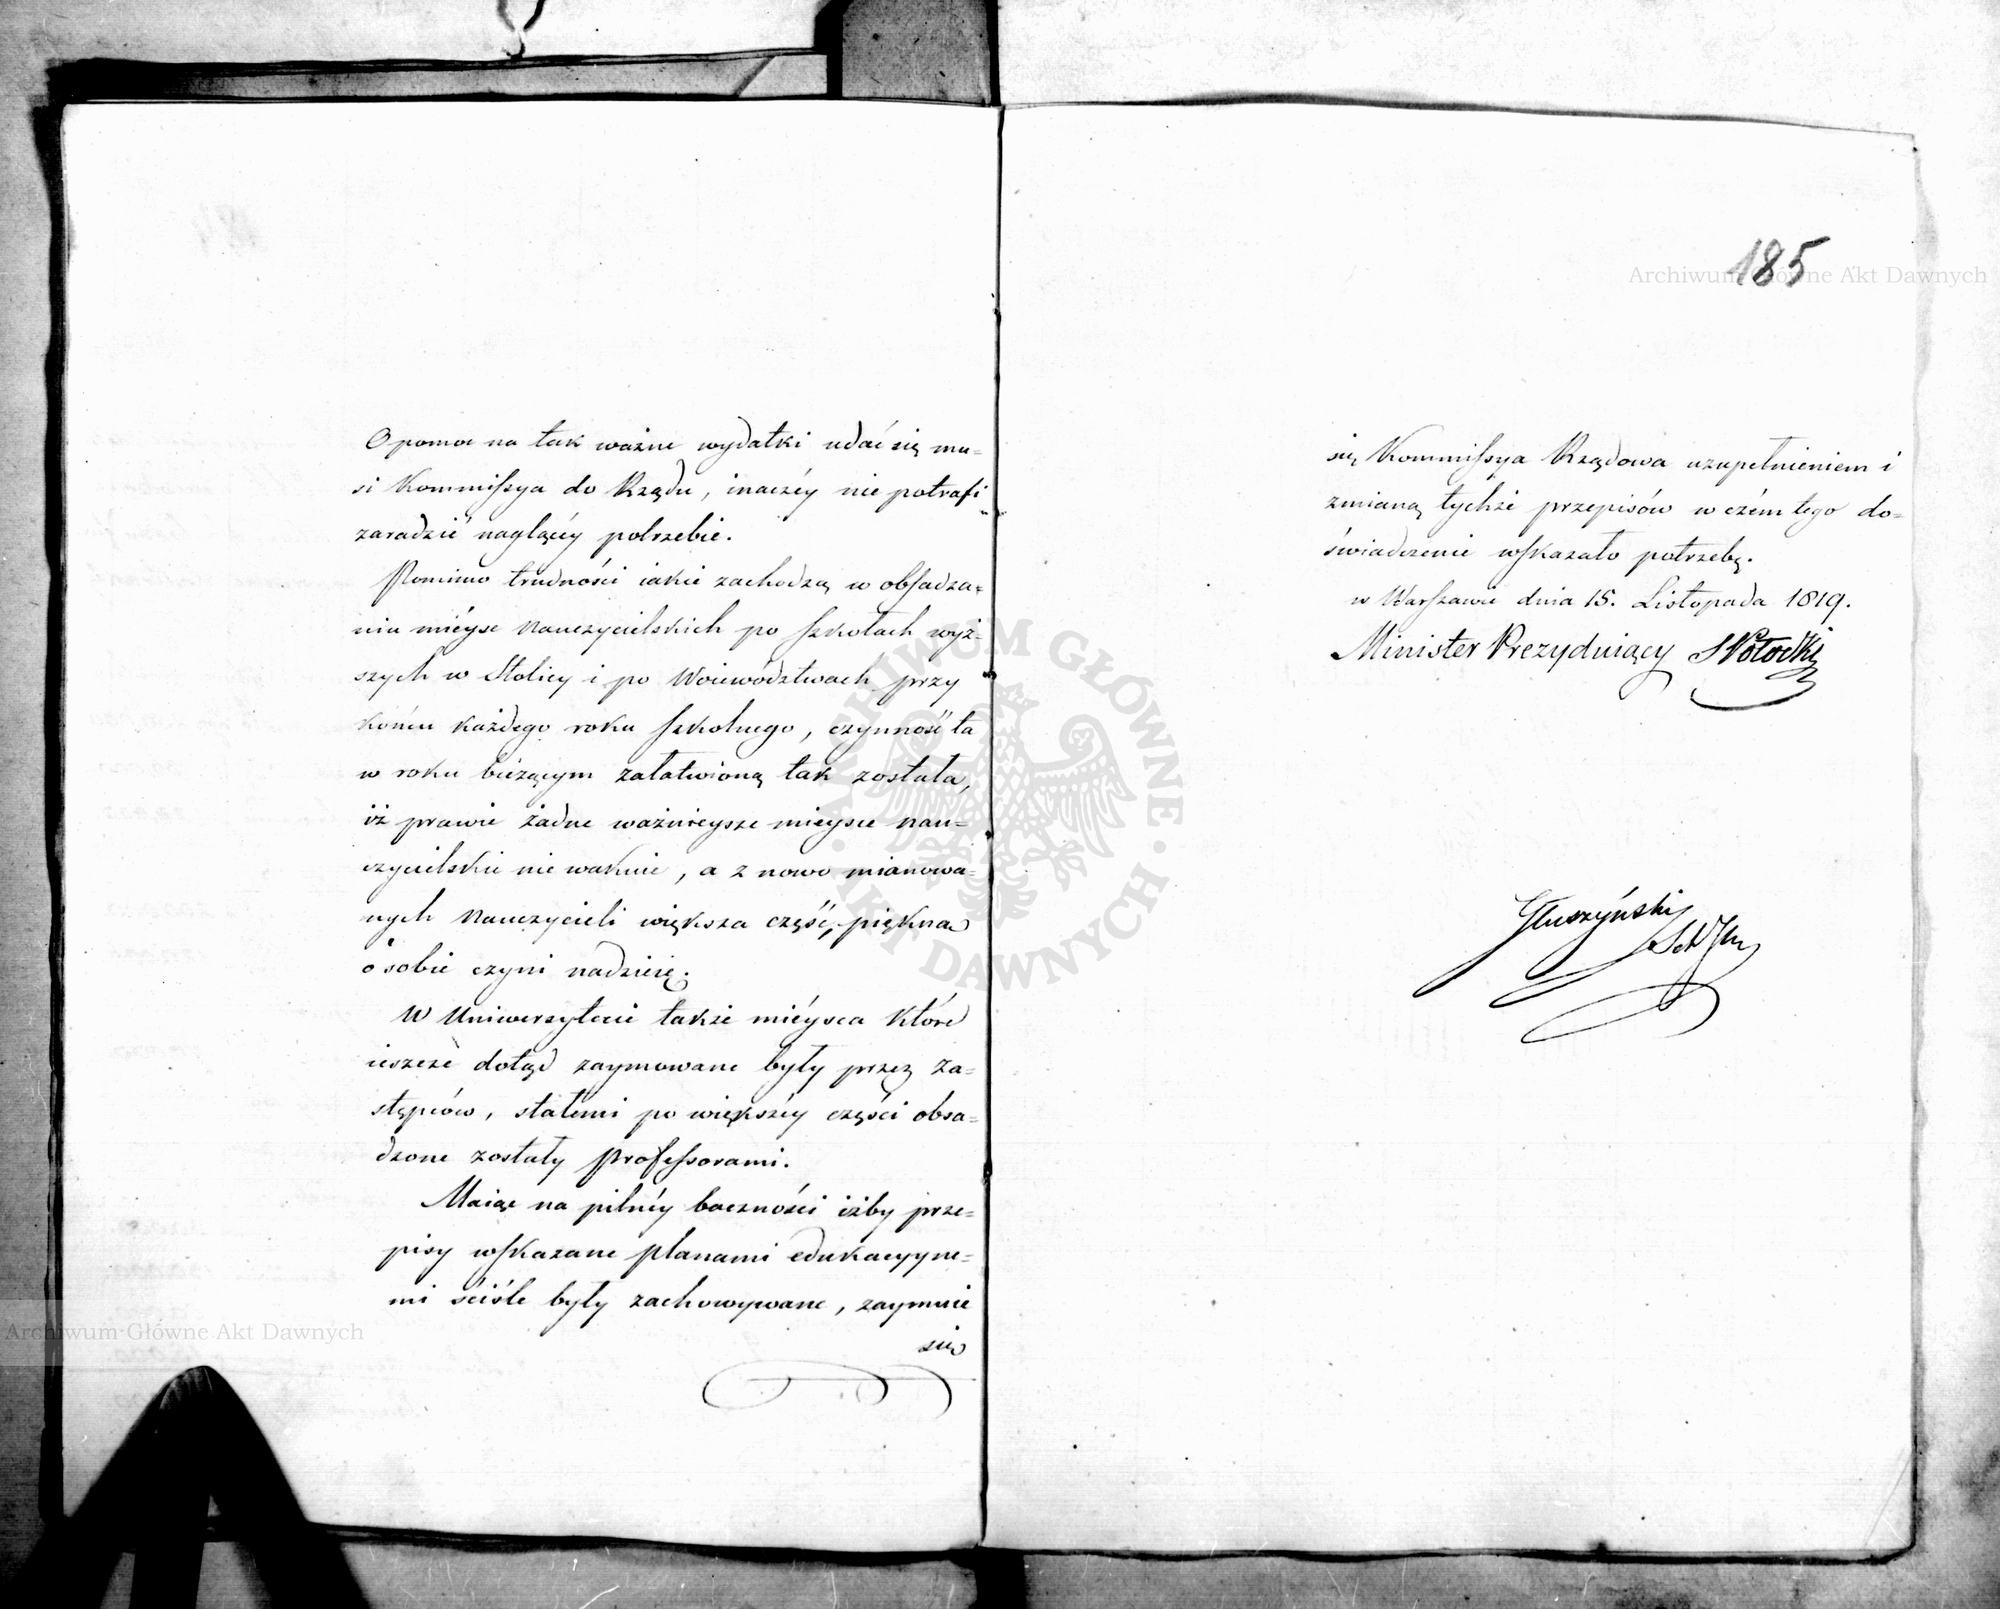 O pomoc na tak ważne wydatki udać się mu-
si Kommissya do Rządu, inaczéy nie potrafi
zaradzić naglącéy potrzebie.
Pomimo trudności iakie zachodzą w obsadza-
niu mieysc Nauczycielskich po szkołach wyż-
szych w Stolicy i po Woiewództwach przy
końcu każdego roku szkolnego, czynność ta
w roku bieżącym załatwioną tak została,
iż prawie żadne ważnieysze mieysce nau-
czycielskie nie wakuie, a z nowo mianowa-
nych Nauczycieli większa część, piękną
o sobie czyni nadzieię.
W Uniwersytecie także mieysca które
ieszcze dotąd zaymowane były przez za-
stępców, stałemi po większéy części obsa-
dzone zostały Professorami.
Maiąc na pilnéy baczności iżby prze-
pisy wskazane planami edukacyyne-
mi ściśle były zachowywane, zaymuie
się
185
się Kommissya Rządowa uzupełnieniem i
zmianą tychże przepisów w czém tego do-
świadczenie wskazało potrzebę.
w Warszawie dnia 15. Listopada 1819.
Minister Prezyduiący S Potocki
Głuszyński
Archiwum Główne Akt Dawnych
ARCHIWUM GŁÓWNE AKT DAWNYCH
Archiwum Główne Akt Dawnych